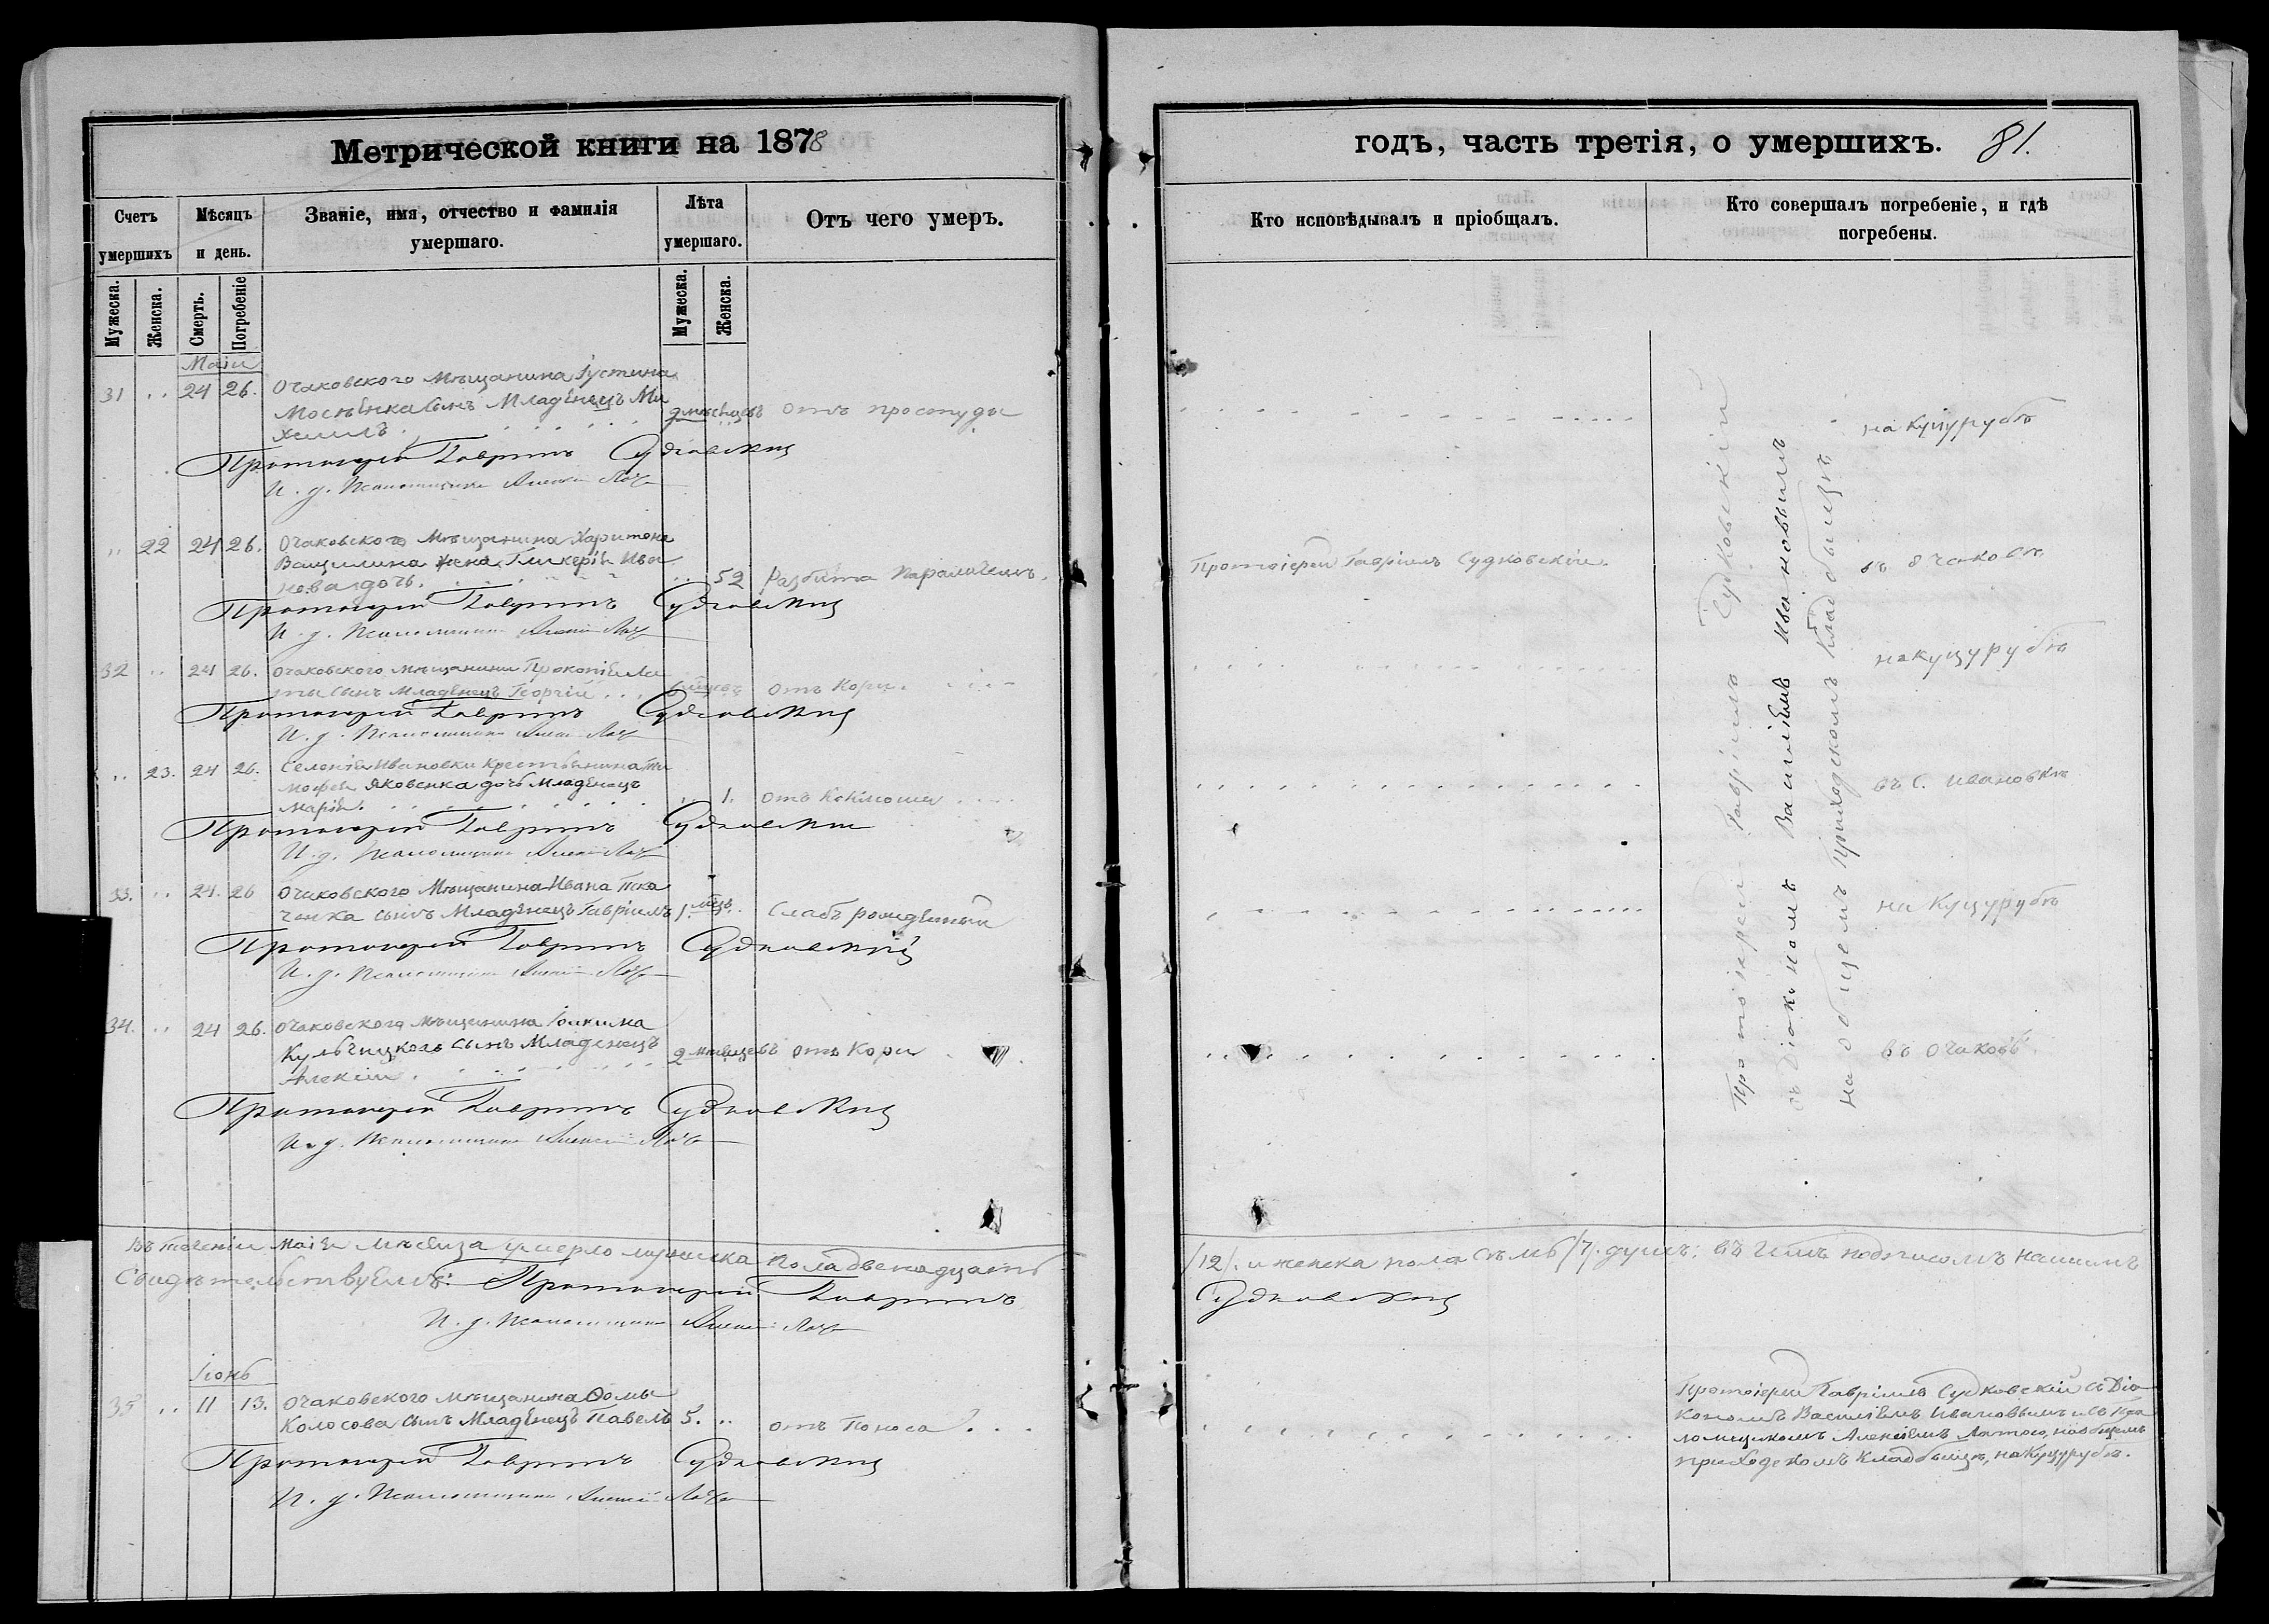 Метрической книги на 1878
Счетъ умершихъ
Мѣсяцъ и день.
Званіе, имя, отчество и фамилія умершаго.
Лѣта умершаго.
Отъ чего умеръ.
Мужеска.
Женска.
Смерть.
Погребеніе
Мужеска.
Женска.
Маій
31 .. 24 26. Очаковского Мѣщанина Іустина
Мосѣнка сынъ Младенецъ Ми
хаилъ. 9 мѣсяцевъ отъ простуды
Протоіерей Гавріилъ Судковскій
И. д. Псаломщика Алексѣй
.. 22 24 26. Очаковского Мѣщанина Харитона
Ващилина жена Гликерія Ива
нова дочь. .. 52 Разбита Параличемъ.
Протоіерей Гавріилъ Судковскій
И. д. Псаломщика Алексѣй
32 .. 24 26. Очаковского мѣщанина Прокопія
сынъ Младенецъ Георгій отъ Кори.
Протоіерей Гавріилъ Судковскій
И. д. Псаломщика Алексѣй
.. 23. 24 26. Селенія Ивановки Крестьянина Ти
мофея Яковенка дочь Младенецъ
Марія. .. 1. отъ Коклюша
Протоіерей Гавріилъ Судковскій
И. д. Псаломщика Алексѣй
33. .. 24. 26 Очаковского Мѣщанина Ивана Тка
ченка сынъ Младенецъ Гавріилъ 1. мѣц. .. Слабъ рожденный
Протоіерей Гавріилъ Судковскій
И. д. Псаломщика Алексѣй
34. .. 24 26. Очаковского мѣщанина Іоакима
Кульчицкого сынъ Младенецъ
Алексій. 2 мѣсяцевъ отъ Кори
Протоіерей Гавріилъ Судковскій
И. д. Псаломщика Алексѣй
Въ теченіи Маія мѣсяца умерло мужеска пола двенадцать
Свидѣтельствуемъ: Протоіерей Гавріилъ
И. д. Псаломщика Алексѣй
Іюнь
35 .. 11 13. Очаковского мѣщанина Ѳомы
Колосова сынъ Младенецъ Павелъ 5. .. отъ Поноса
Протоіерей Гавріилъ Судковскій
И. д. Псаломщика Алексѣй
годъ, часть третія, о умершихъ. 81.
Кто исповѣдывалъ и пріобщалъ.
Кто совершалъ погребеніе, и гдѣ погребены.
на Куцурубѣ
Протоіерей Гавріилъ Судковскій. въ Очаковѣ
на Куцурубѣ
въ С. Ивановкѣ
на Куцурубѣ
въ Очаковѣ.
Протоіерей Гавріилъ Судковскій
съ Діакономъ Василіемъ Ивановымъ
на общемъ приходскомъ кладбищѣ
/12/. и женска пола семь /7/. душъ: въ чемъ подписомъ нашимъ
Судковскій
Протоіерей Гавріилъ Судковскій съ Діа
кономъ Василіемъ Ивановымъ и Пса
ломщикомъ Алексіемъ на общемъ
приходскомъ кладбищѣ, на Куцурубѣ.